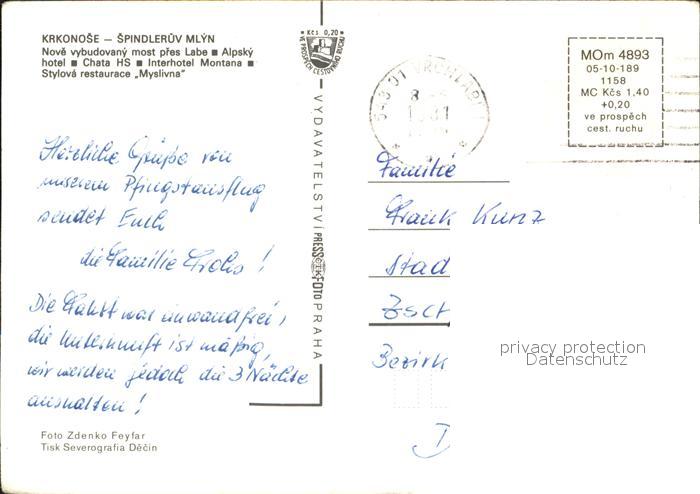 KRKONOŠE — ŠPINDLERŮV MLÝN
Nově vybudovaný most přes Labe ■ Alpský
hotel ■ Chata HS ■ Interhotel Montana ■
Stylová restaurace „Myslivna"
Kčs 0,20
VE PROSPĚCH CESTOVNÍHO RUCHU
543 01 VRCHLABÍ
MOm 4893
05-10-189
1158
MC Kčs 1.40
+0,20
ve prospěch
cest. ruchu
VYDAVATELSTVÍ PRESSFOTO PRAHA
Herzliche Grüße von
unserem Pfingstausflug
sendet Euch
die Familie !
Die Fahrt war einwandfrei,
die Unterkunft ist mäßig,
wir werden jedoch die 3 Nächte
aushalten!
Familie
Frank Kunz
Stad
Zsch
Bezirk
D
privacy protection
Datenschutz
Foto Zdenko Feyfar
Tisk Severografia Děčín